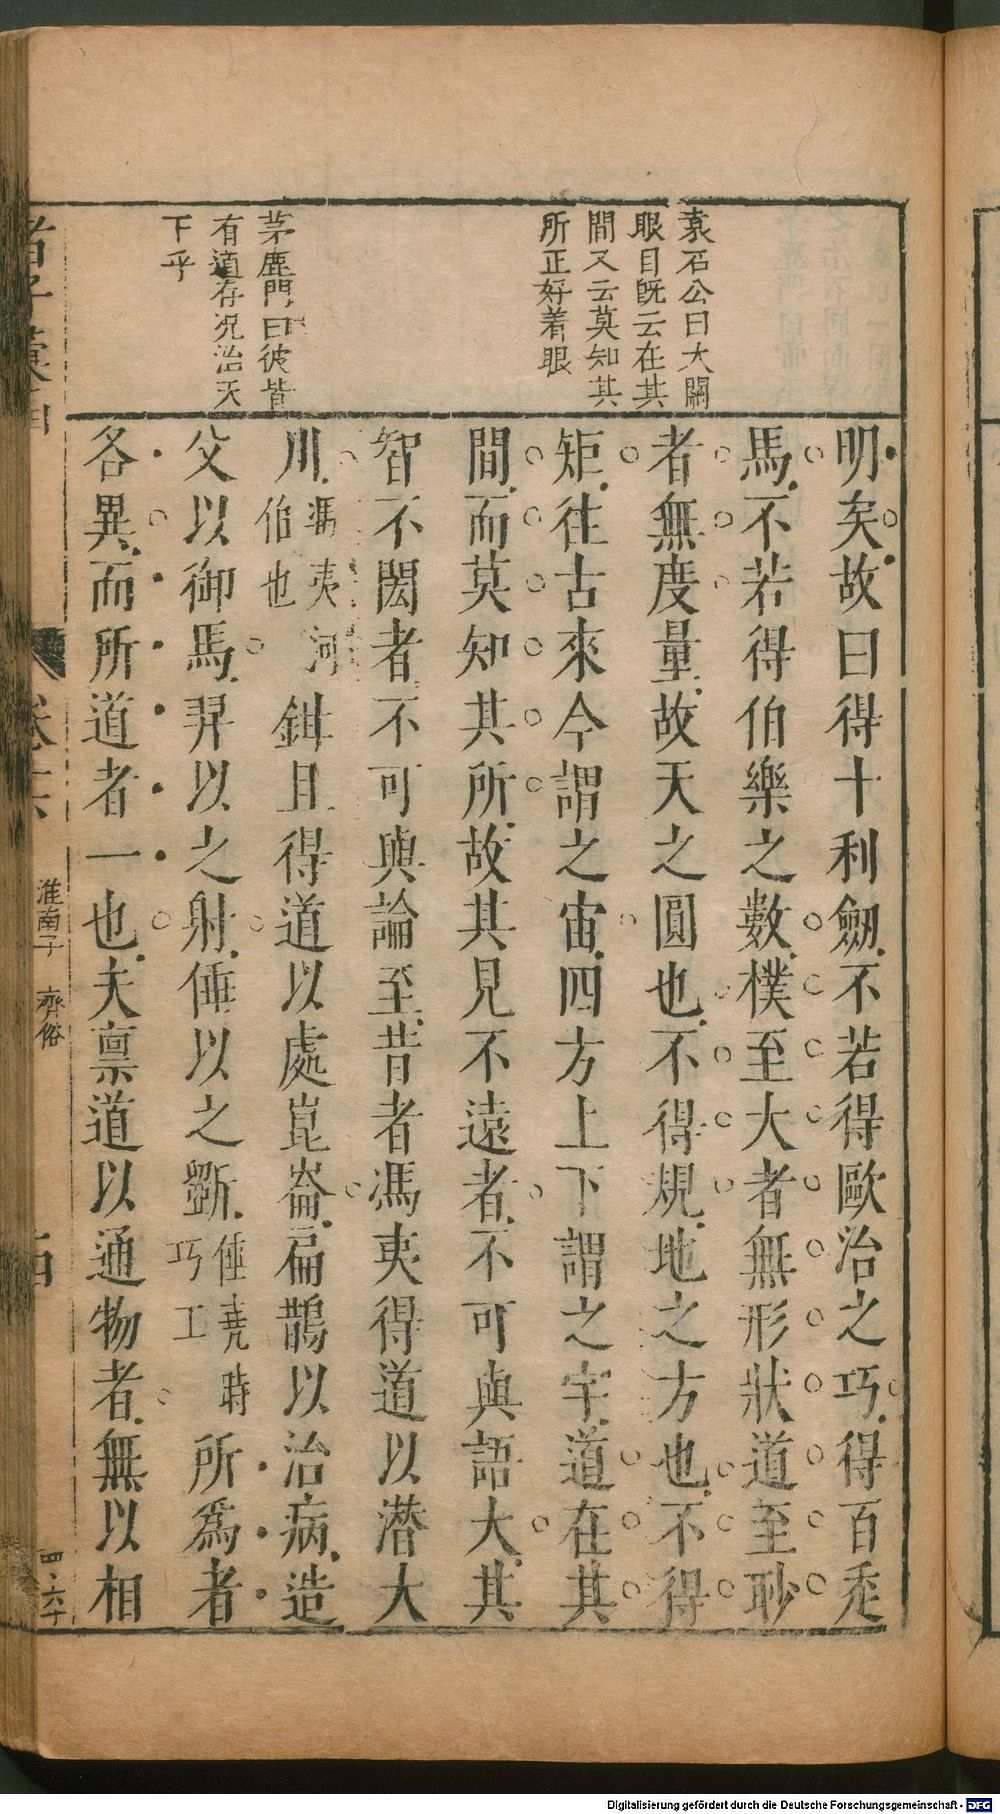 袁石公曰大關
眼目旣云在其
間又云莫知其
所正好着眼
茅鹿門曰彼皆
有道存况治天
下乎
明矣故曰得十利劒不若得歐冶之巧得百㐬
馬不若得伯樂之數樸至大者無形狀道至眇
者無度量故天之圓也不得規地之方也不得
矩往古來今謂之宙四方上下謂之宇道在其
間而莫知其所故其見不遠者不可與語大其
智不閎者不可與論至昔者馮夷得道以潛大
川馮夷河伯也鉗且得道以處崑崙扁鵲以治病造
父以御馬羿以之射倕以之斵倕堯時巧工所爲者
各異而所道者一也夫禀道以通物者無以相
淮南子 齊俗
Digitalisierung gefördert durch die Deutsche Forschungsgemeinschaft - DFG